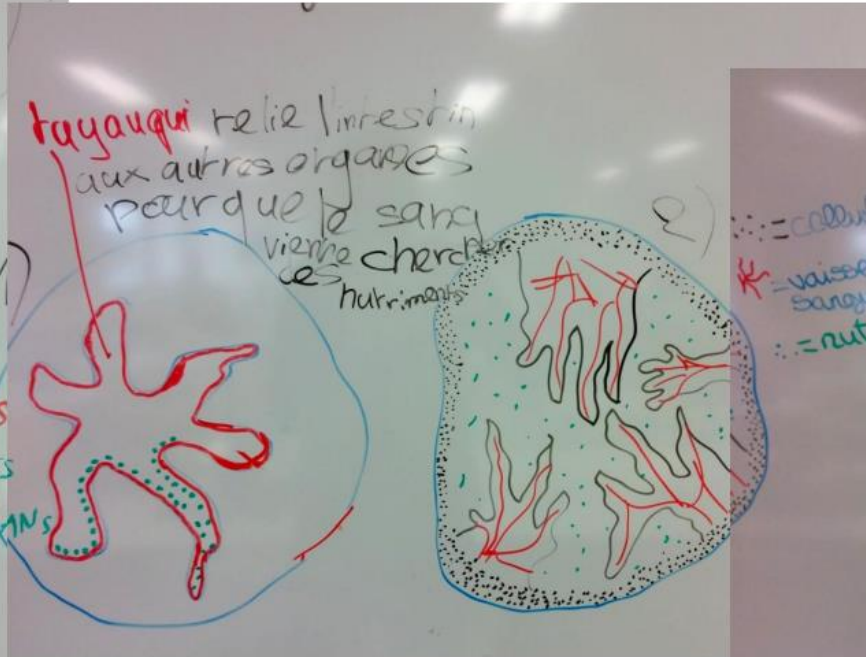 tuyau qui relie l'intestin
aux autres organes
pour que le sang
vienne chercher
les
nutriments
1)
2)
= cellul
= vaisse
sang
= nut